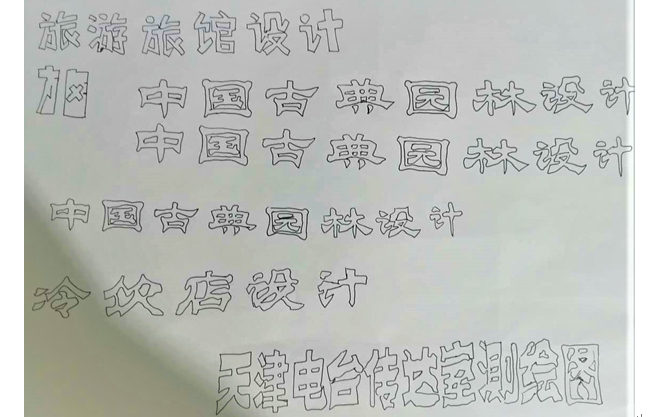 旅游旅馆设计
中国古典园林设计
中国古典园林设计
中国古典园林设计
冷饮店设计
天津电台传达室测绘图